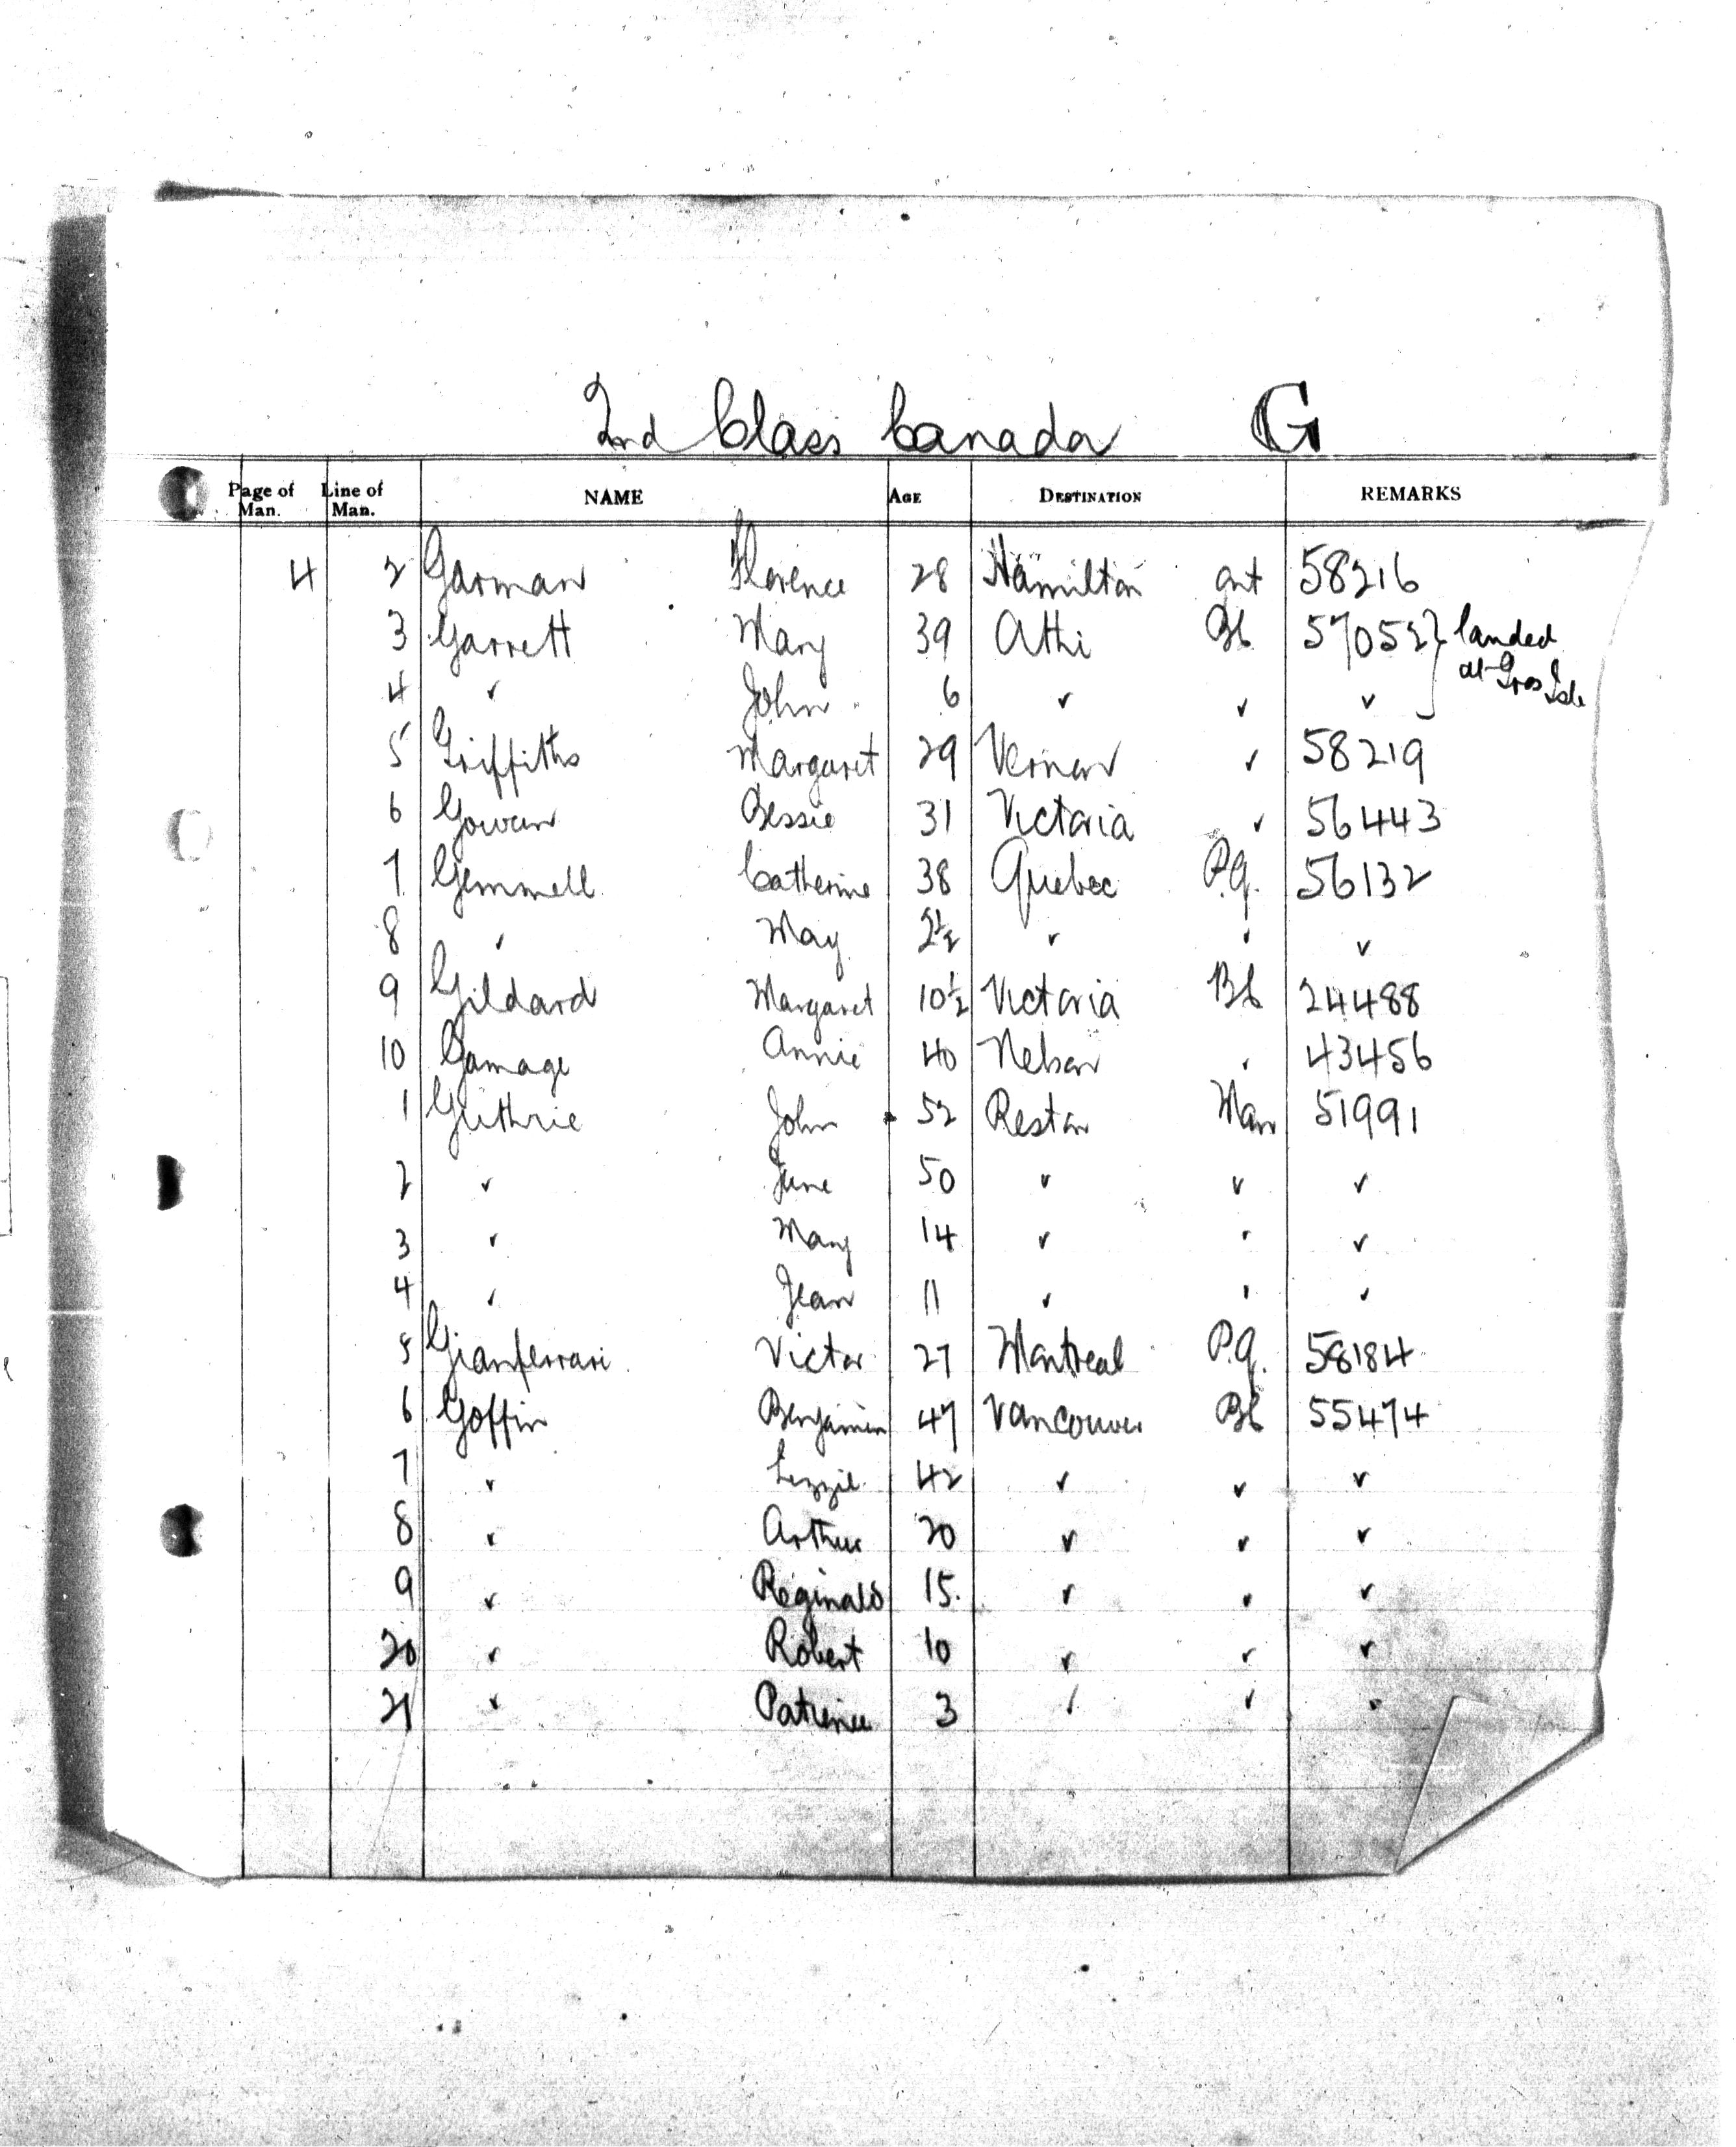 2nd Class Canada G
Page of Man. Line of Man. NAME AGE DESTINATION REMARKS
4 2 Garman Florence 28 Hamilton Ont 58216
3 Garrett Mary 39 Athi BC 57052 } landed
4 " John 6 " " " at Gros Isle
5 Griffiths Margaret 29 Vernon " 58219
6 Gowan Bessie 31 Victoria " 56443
7 Gemmell Catherine 38 Quebec P.Q. 56132
8 " May 2½ " " "
9 Gildard Margaret 10½ Victoria BC 24488
10 Gamage Annie 40 Nelson " 43456
1 Guthrie John 52 Reston Man 51991
2 " June 50 " " "
3 " Mary 14 " " "
4 " Jean 11 " " "
5 Gianferrari Victor 27 Montreal P.Q. 58184
6 Goffin Benjamin 47 Vancouver BC 55474
7 " Lizzie 42 " " "
8 " Arthur 20 " " "
9 " Reginald 15 " " "
20 " Robert 10 " " "
21 " Patience 3 " " "